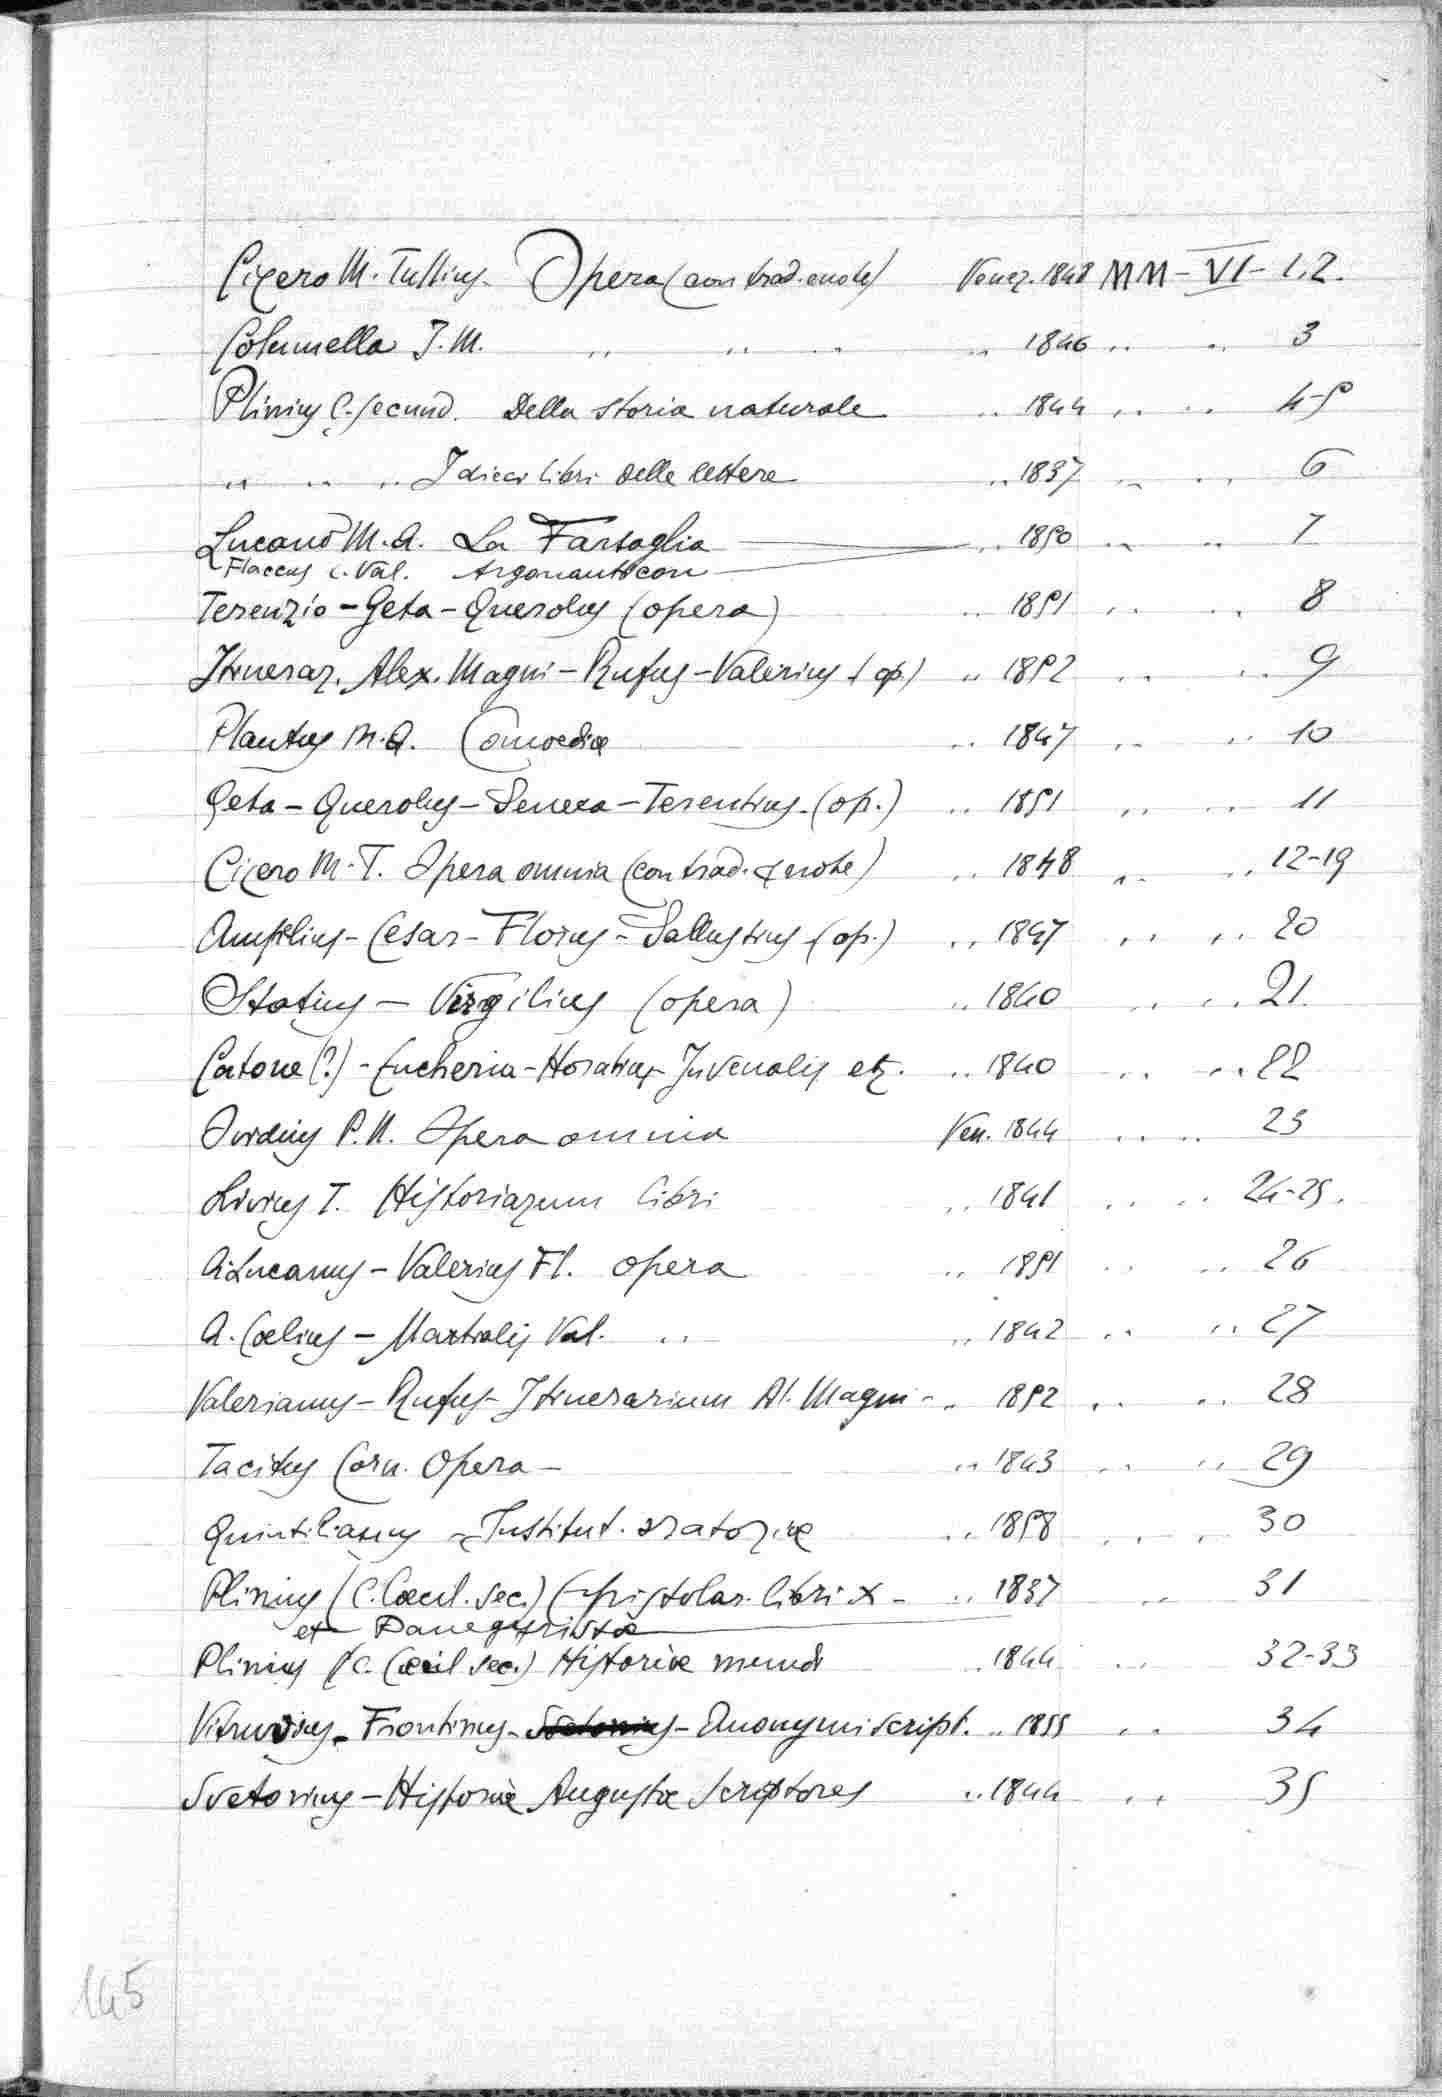 Cicero M. Tullius - Opera (con trad. e note) Venez. 1848 MM - VI - 1.2.
Columella J. M. " " " " 1846 " " 3
Plinius C. Secund. Della storia naturale " 1844 " " 4-5
" " " I dieci libri delle lettere " 1837 " " 6
Lucano M. A. La Farsaglia — " 1850 " " 7
Flaccus C. Val. Argonauticon —
Terenzio - Geta - Querolus (opera) " 1851 " " 8
Itinerar. Alex. Magni - Rufus - Valerius (op.) " 1852 " " 9
Plautus M. A. Comoediæ " 1847 " " 10
Geta - Querolus - Seneca - Terentius - (op.) " 1851 " " 11
Cicero M. T. Opera omnia (con trad. e note) " 1848 " " 12-19
Ampelius - Cesar - Florus - Sallustius - (op.) " 1847 " " 20
Statius - Virgilius (opera) " 1840 " " 21.
Catone (?) - Eucheria - Horatius - Juvenalis etc. " 1840 " " 22
Ovidius P. N. Opera omnia Ven. 1844 " " 23
Livius T. Historiarum libri " 1841 " " 24-25.
A. Lucanus - Valerius Fl. opera " 1851 " " 26
A. Cælius - Martialis Val. " " 1842 " " 27
Valerianus - Rufus - Itinerarium Al. Magni - " 1852 " " 28
Tacitus Corn. Opera - " 1843 " " 29
Quintilianus - Institut. oratoriæ " 1858 " " 30
Plinius (C. Cæcil. Sec.) Epistolar. libri X - " 1837 " 31
et Panegyristæ —
Plinius (C. Cæcil sec.) Historiæ mundi " 1844 " 32-33
Vitruvius - Frontinus - Svetonius - Anonymi script. " 1855 " 34
Svetonius - Historiæ Augustæ Scriptores " 1844 " 35
145